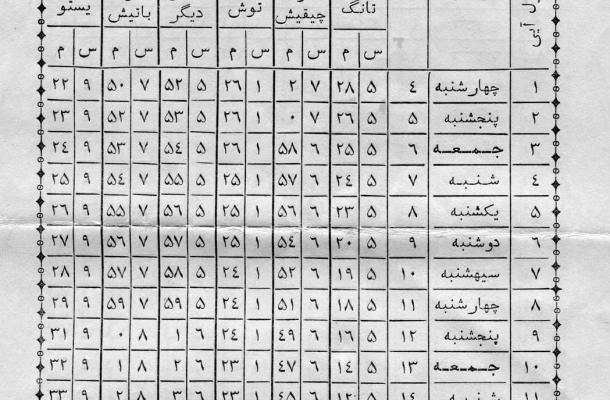 آيى
تانگ چيقيش توش ديگر باتيش
س م س م س م س م س م س م
۱ چهارشنبه ٤ ۵ ۲۸ ۷ ۲ ۱ ۲٦ ۵ ۵۲ ۷ ۵۰ ۹ ۲۲
۲ پنجشنبه ۵ ۵ ۲٦ ۷ ۰ ۱ ۲٦ ۵ ۵۳ ۷ ۵۲ ۹ ۲۳
۳ جمعه ٦ ۵ ۲۵ ٦ ۵۸ ۱ ۲٦ ۵ ۵٤ ۷ ۵۳ ۹ ۲٤
٤ شنبه ۷ ۵ ۲٤ ٦ ۵۷ ۱ ۲۵ ۵ ۵۵ ۷ ۵٤ ۹ ۲۵
۵ يكشنبه ۸ ۵ ۲۳ ٦ ۵٦ ۱ ۲۵ ۵ ۵٦ ۷ ۵۵ ۹ ۲٦
٦ دوشنبه ۹ ۵ ۲۰ ٦ ۵٤ ۱ ۲۵ ۵ ۵۷ ۷ ۵٦ ۹ ۲۷
۷ سيهشنبه ۱۰ ۵ ۱۹ ٦ ۵۲ ۱ ۲٤ ۵ ۵۸ ۷ ۵۷ ۹ ۲۸
۸ چهارشنبه ۱۱ ۵ ۱۸ ٦ ۵۱ ۱ ۲٤ ۵ ۵۹ ۷ ۵۹ ۹ ۲۹
۹ پنجشنبه ۱۲ ۵ ۱٦ ٦ ٤۹ ۱ ۲٤ ٦ ۱ ۸ ۰ ۹ ۳۱
۱۰ جمعه ۱۳ ۵ ۱٤ ٦ ٤۷ ۱ ۲۳ ٦ ۲ ۸ ۱ ۹ ۳۲
۱۱ شنبه ۱٤ ۵ ۱۲ ٦ ٤۵ ۱ ۲۳ ٦ ۳ ۸ ۲ ۹ ۳۳